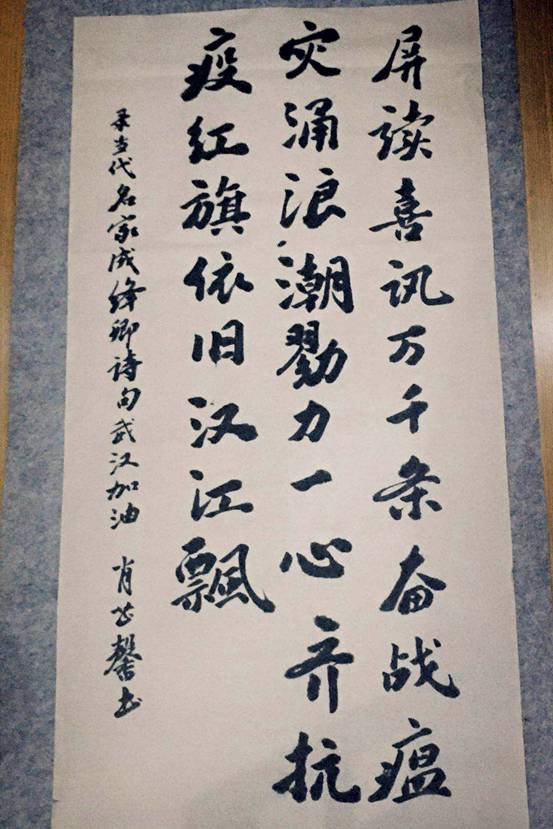 屏读喜讯万千条奋战瘟
灾涌浪潮勠力一心齐抗
疫红旗依旧汉江飘
录当代名家成绛卿诗句武汉加油 肖书